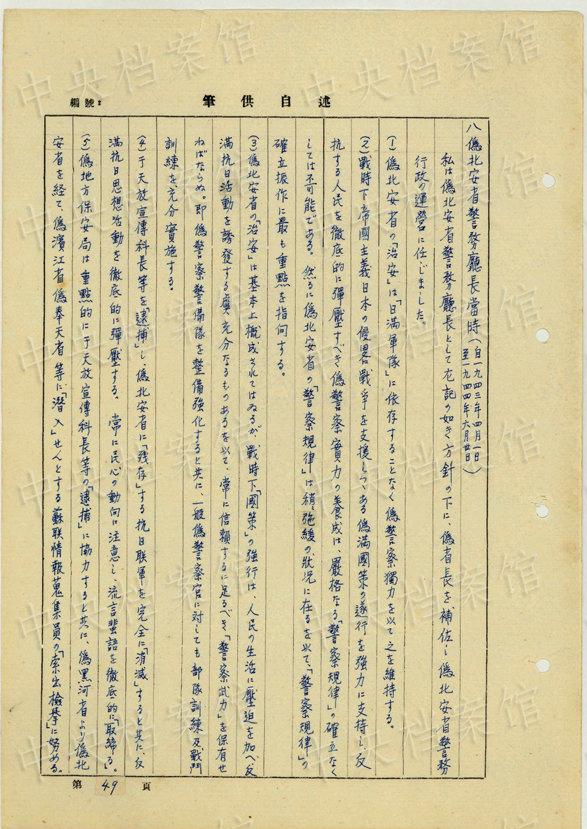 述自供筆
編號：
八 偽北安省警務廳長當時（自一九四三年四月一日至一九四四年六月廿日）
私は偽北安省警務廳長として左記の如き方針の下に、偽省長を補佐し偽北安省警務
行政の運營に任じました。
(1) 偽北安省の「治安」は「日満軍隊」に依存することなく偽警察獨力を以て之を維持する。
(2) 戰時下帝國主義日本の侵畧戰爭を支援しつゝある偽満國策の遂行を強力に支持し、反
抗する人民を徹底的に彈壓すべき偽警察實力の養成は嚴格なる「警察規律」の確立なく
しては不可能である。然るに偽北安省の「警察規律」は稍々弛緩の狀況に在るを以て、「警察規律」の
確立振作に最も重點を指向する。
(3) 偽北安省の「治安」は基本上概成されてはゐるが、戰時下「國策」の強行は、人民の生活に壓迫を加へ、反
満抗日活動を誘發する虞充分なるものあるを以て、常に信頼するに足るべき「警察武力」を保有せ
ねばならぬ。即偽警察警備隊を整備強化すると共に、一般偽警察官に対しても部隊訓練及戰鬥
訓練を充分實施する。
(4) 于天放宣傳科長等を「逮捕」し偽北安省に「残存」する抗日联軍を完全に「消滅」すると共に、反
満抗日思想活動を徹底的に彈壓する。常に民心の動向に注意し、流言蜚語を徹底的に「取締る」。
(5) 偽地方保安局は重點的に于天放宣傳科長等の「逮捕」に協力すると共に、偽黒河省より偽北
安省を経て、偽濱江省偽奉天省等に「潜入」せんとする蘇联情報蒐集員の「索出檢擧」に努める。
第 49 頁
中央档案馆